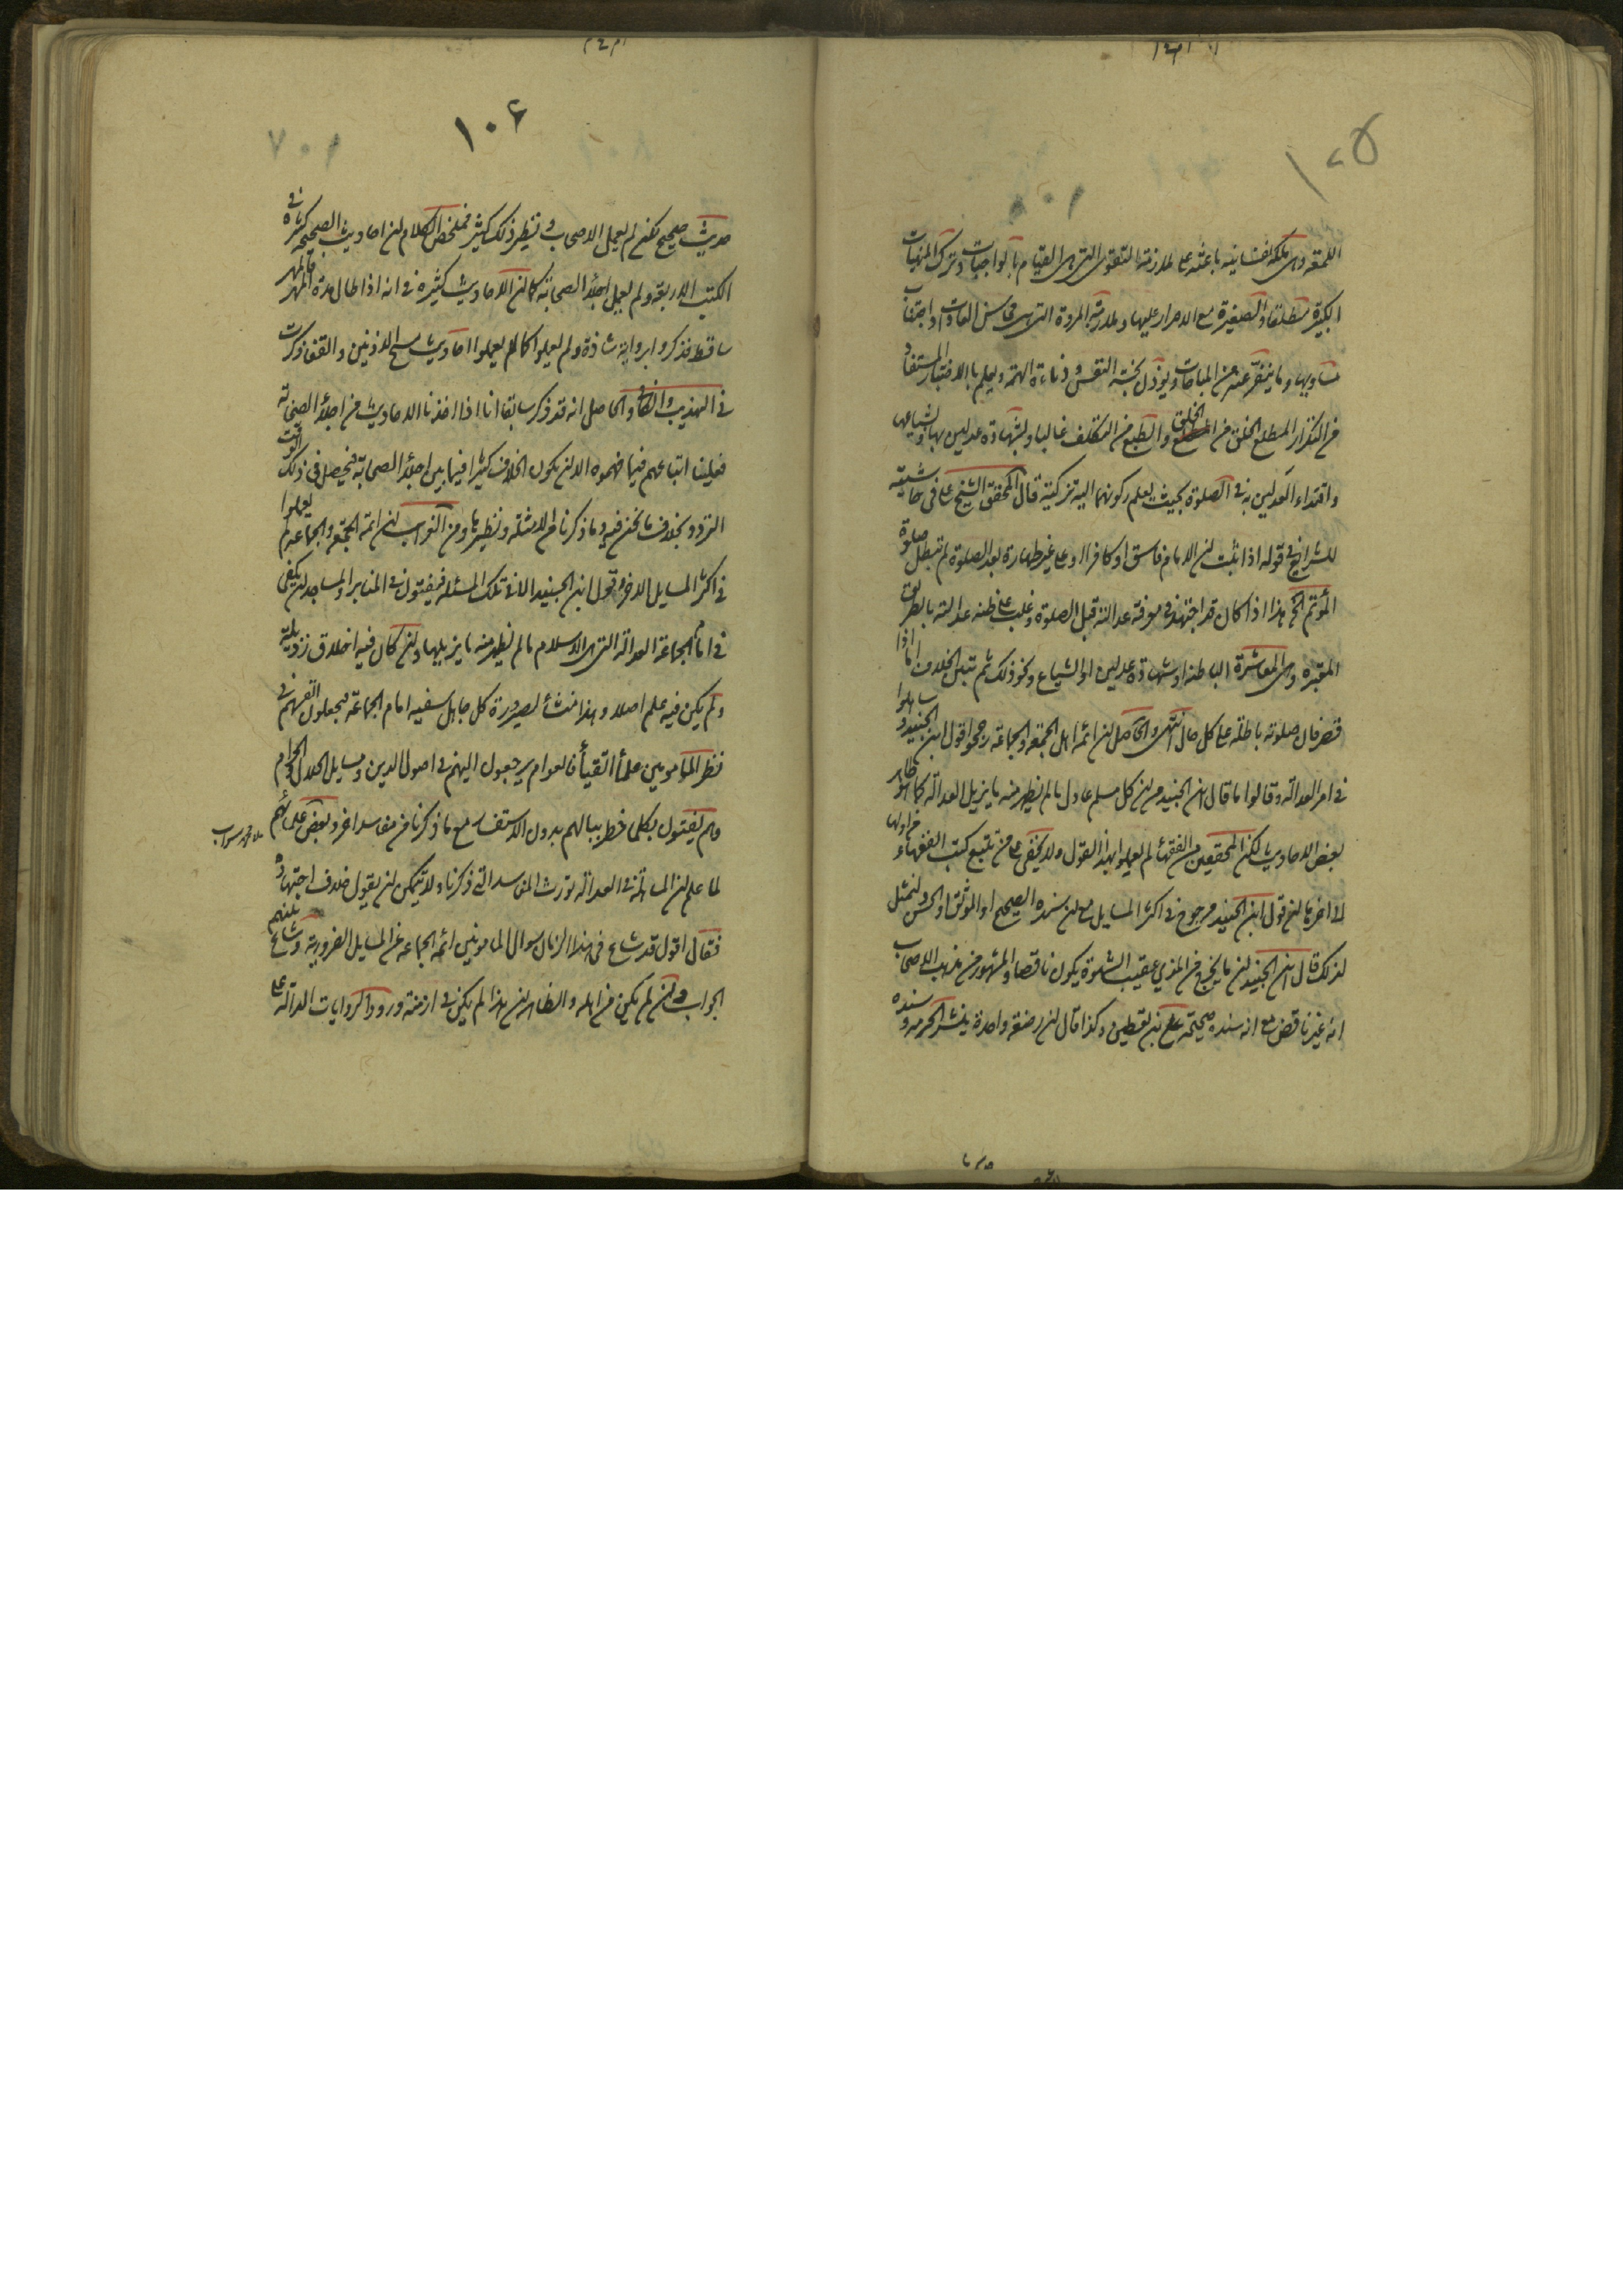 ١٠٥
اللمعة وهى ملكة نفسانية باعثة على ملازمة التقوى التى هى القيام بالواجبات وترك المنهيات
الكبيرة مطلقا والصغيرة مع الاصرار عليها وملازمة المروة التى هى محاسن العادات واجتناب
مساويها وما ينفر عنه من المباحات ويؤذن بخسة النفس ودناءة الهمة ويعلم بالاختبار المستفاد
من التكرار المطلع الخلق من التخلق والطبع من التكلف غالبا وبشهادة عدلين بها وبشياعها
واقتداء العدلين به فى الصلوة بحيث يعلم ركونهما اليه تزكية قال المحقق الشيخ على فى حاشيته
للشرايع فى قوله اذا ثبت ان الامام فاسق او كافر او على غير طهارة بعد الصلوة لم تبطل صلوة
المؤتم الخ هذا اذا كان قد اجتهد فى معرفة عدالته قبل الصلوة وغلب على ظنه عدالته بالطرق
المعتبرة وهى المعاشرة الباطنة او شهادة عدلين او الشياع ونحو ذلك ثم تبين الخلاف اما اذا
قصر فان صلوته باطلة على كل حال انتهى والحاصل ان ائمة اهل الجمعة والجماعة رجحوا قول ابن الجنيد و
فى امر العدالة وقالوا ما قال ابن الجنيد من ان كل مسلم عادل ما لم يظهر منه ما يزيل العدالة كما هو ظاهر
بعض الاحاديث لكن المحققين من الفقهاء لم يعملوا بهذا القول ولا يخفى على من تتبع كتب الفقهاء من اولها
الى اخرها ان قول ابن الجنيد مرجوح فى اكثر المسايل مع ان سنده الصحيح او الموثق او الحسن ولنمثل
لذلك قال ابن الجنيد ان ما يخرج من المذى عقيب الشهوة يكون ناقضا والمشهور من مذهب الاصحاب
انه غير ناقض مع انه سنده صحيحة على بن يقطين وكذا قال ان رضعة واحدة ينشر الحرمة وسنده
١٠٦
حديث صحيح لكن لم يعمل الاصحاب و نظير ذلك كثير فملخص الكلام ان احاديث الصحيحة كثيرة فى
الكتب الاربعة ولم يعمل اجلاء الصحابة كما ان الاحاديث كثيرة فى انه اذا طال مدة المهر فالمهر
ساقط فذكروا برواية شاذة ولم يعملوا كما لم يعملوا احاديث مسح الاذنين والقفا وذكرت
فى التهذيب والكافى والحاصل انه قد ذكر سابقا انا اذا اخذنا الاحاديث من اجلاء الصحابة
فعلينا اتباعهم فيما فهموه الا ان يكون الخلاف كثيرا فيما بين اجلاء الصحابة فيحصل فى ذلك الوقت
التردد بخلاف ما نحن فيه وما ذكرنا من الامثلة ونظيرها ومن النوادر ان ائمة الجمعة والجماعة لم يعملوا
فى اكثر المسايل الاخر قول ابن الجنيد الا فى تلك المسئلة فيفتون فى المنابر والمساجد ان يكفى
فى امام الجماعة العدالة التى هى الاسلام ما لم يظهر منه ما يزيلها وان كان فيه اخلاق رذيلة
ولم يكن فيه علم اصلا وهذا منشأ لصيرورة كل جاهل سفيه امام الجماعة فيجعلون انفسهم فى
نظر المامومين علماء اتقياء فالعوام يرجعون اليهم فى اصول الدين ومسايل الحلال والحرام
وهم يفتون بكلما خطر ببالهم بدون الاستفسار مع ما ذكرنا من مفاسد اخر وبعض علمائهم
لما علم ان المساهلة فى العدالة تورث المفاسد التى ذكرنا ولا يتمكن ان يقول خلاف اجتهاده
فقال اقول قد شاع فى هذا الزمان سوال المامومين ائمة الجماعة عن المسايل الضرورية وشاع منهم
الجواب وان لم يكن من اهله والظاهر ان هذا لم يكن فى ازمنة ورود اكثر الروايات الدالة على